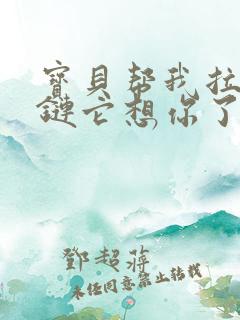 寶貝帮我拉
鏈它想你了
鄧超蔣
未经同意禁止转载